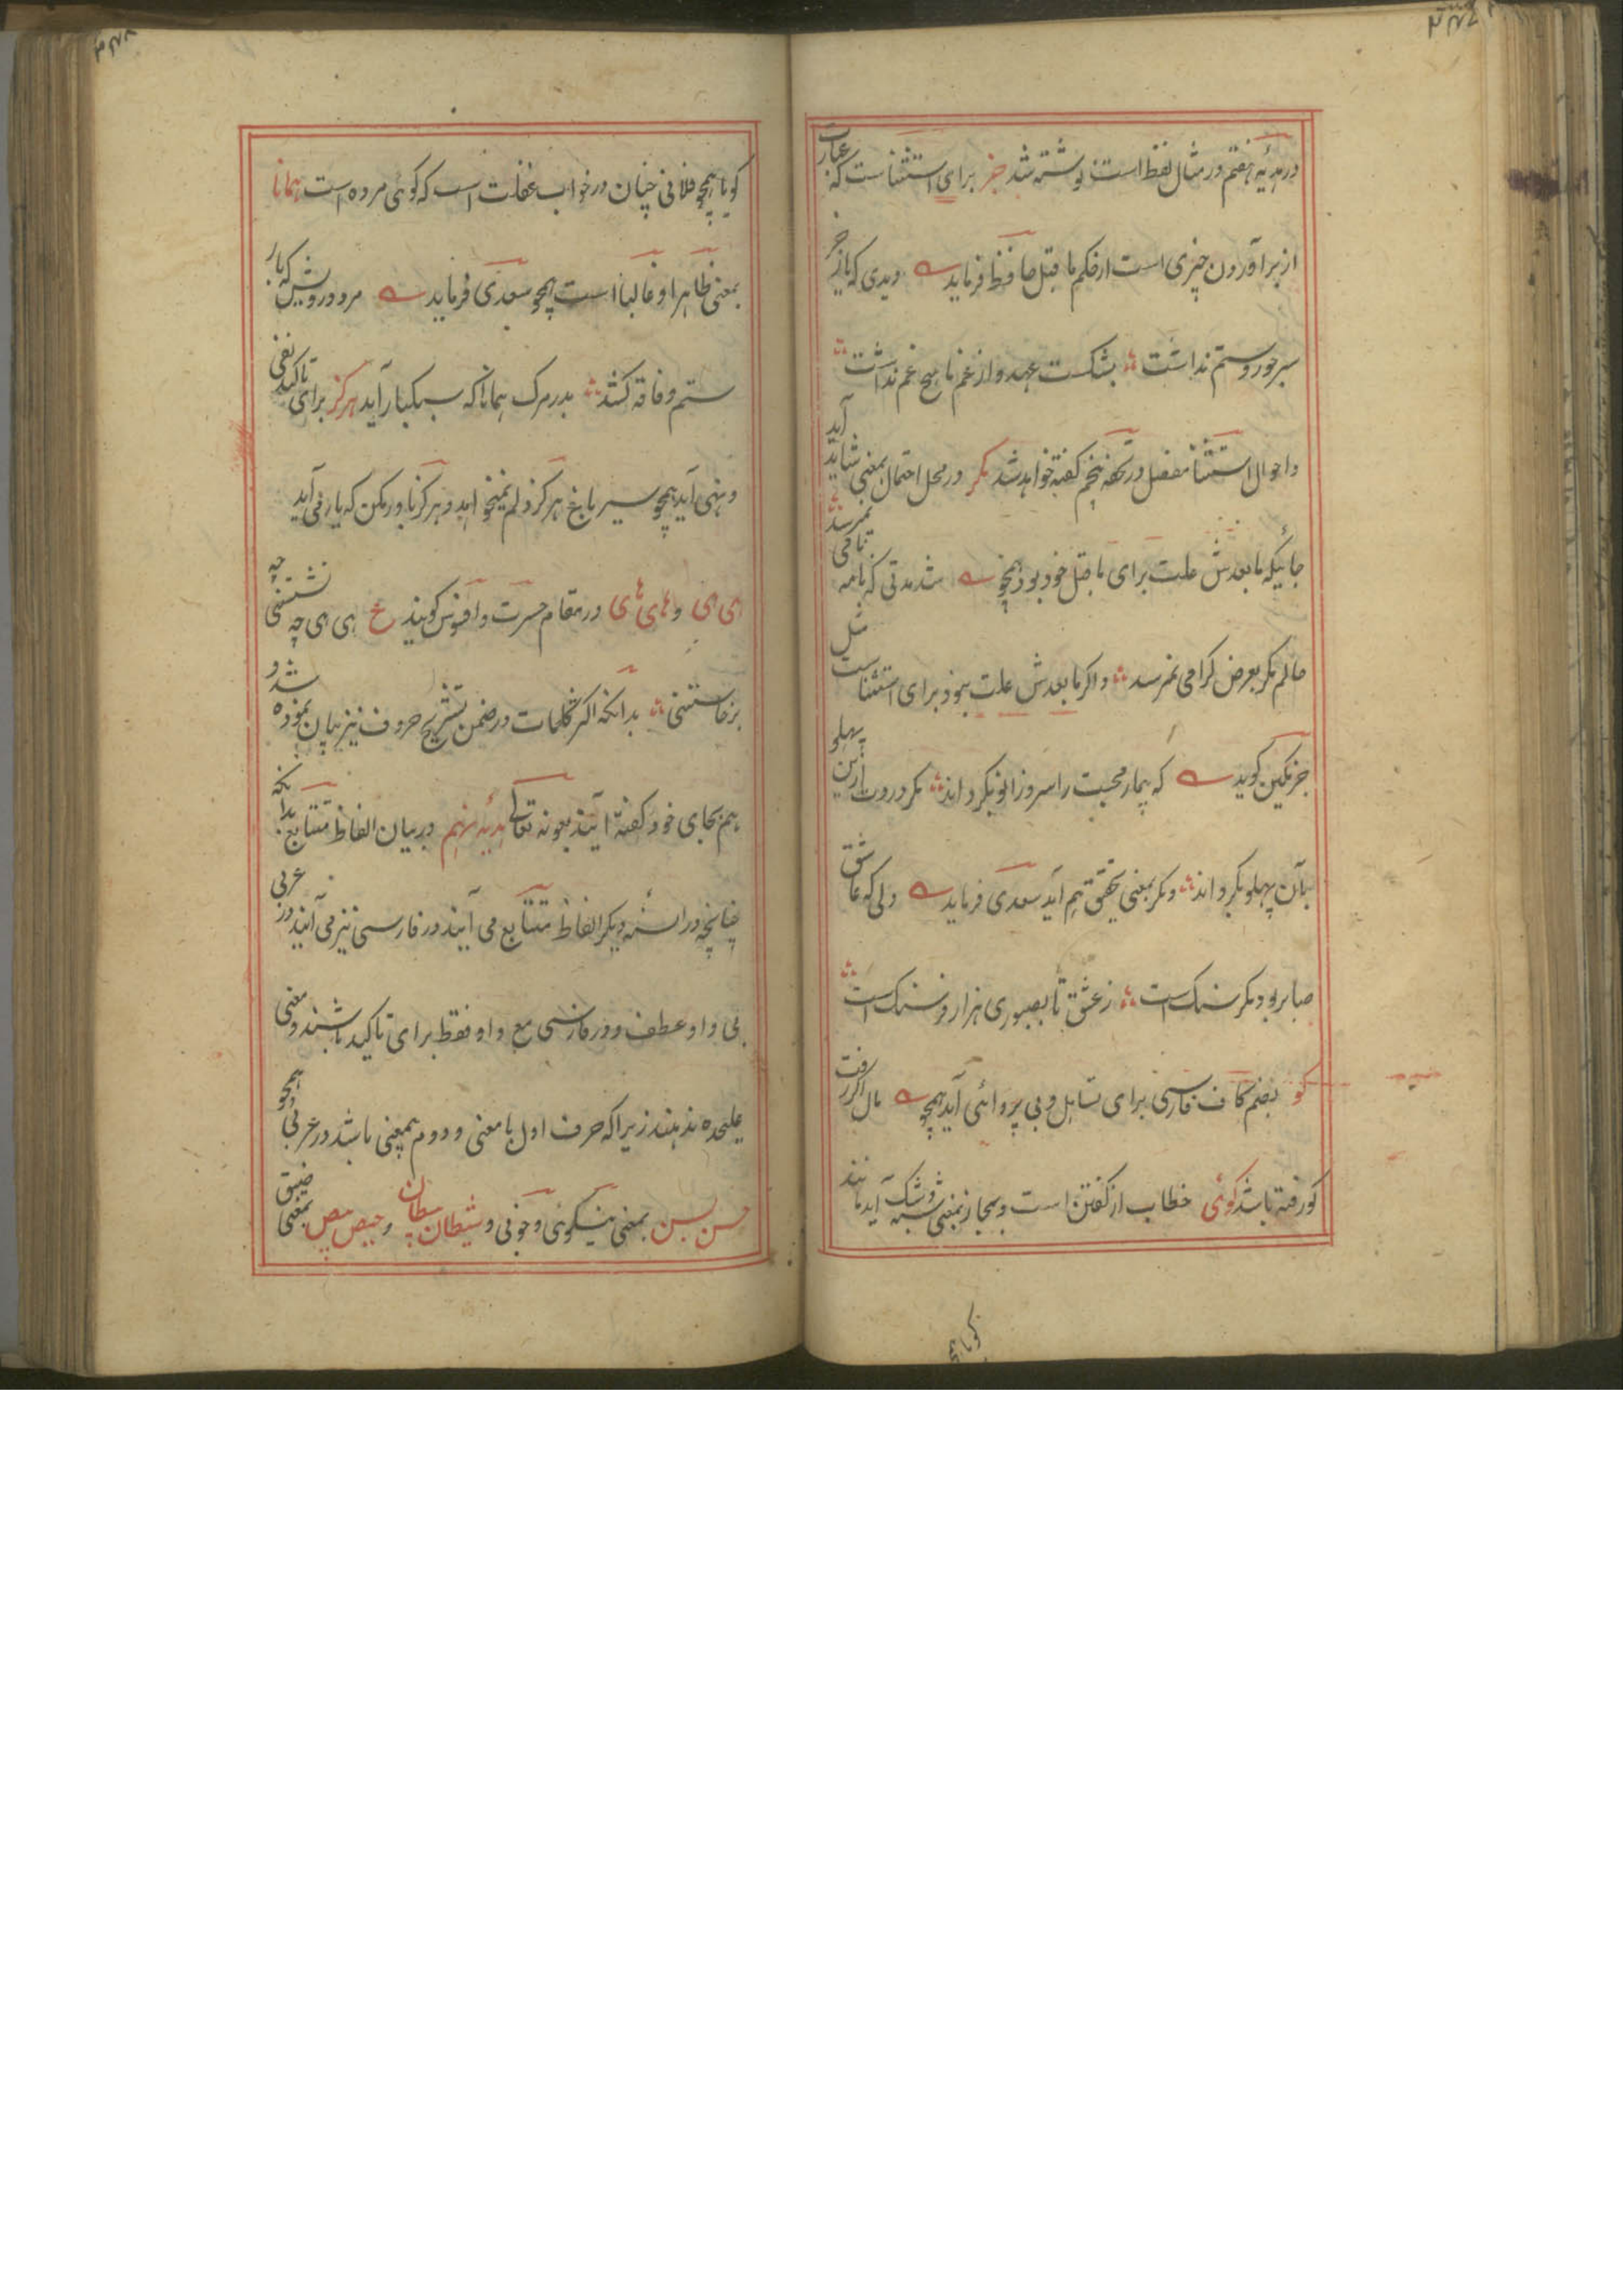 در هدیهٔ هفتم در مثال لفظ است نوشته شد جز برای استثنا است که عبارت
از برآوردن چیزی است از حکم ما قبل حافظ فرماید دیدی که یار جز
سر جور و ستم نداشت بشکست عهد و از غم ما هیچ غم نداشت
و احوال استثنا مفصل در تحفه پنجم گفته خواهد شد مگر در محل احتمال بمعنی شاید آید
جائیکه ما بعدش علت برای ما قبل خود بود همچو شد مدتی که نامه نامی نمیرسد
حالم مگر بعرض گرامی نمیرسد و اگر ما بعدش علت نبود برای استثنا است مثل
حزین گوید که بیمار محبت را سر و زانو نگرداند مگر دردت ازین پهلو
بآن پهلو بگرداند و مگر بمعنی تحقق هم آید سعدی فرماید دلی که عاشق
صابر بود مگر سنگ است ز عشق تا بصبوری هزار فرسنگ است
گو بضم کاف فارسی برای تساهل و بی پروائی آید همچو مال اگر رفت
گو رفته باشد گوئی خطاب از گفتن است و بمجاز بمعنی شبه و شک آید مانند
گویا همچو
گویا همچو فلانی چنان در خواب غفلت است که گوئی مرده است همانا
بمعنی ظاهرا و غالبا است همچو سعدی فرماید مرد درویش که بار
ستم فاقه کشد بدر مرگ همانا که سبکبار آید هرگز برای تاکید نفی
و نهی آید همچو سیر باغ هرگز دلم نمیخواهد و هرگز باور مکن که یار می آید
ای ای و های های در مقام حسرت و افسوس گویند ع ای ای چه نشستنی چه
برخاستنی بدانکه اکثر کلمات در ضمن تشریح حروف نیز بیان نموده شد و
هم بجای خود گفته آیند بعونه تعالی هدیهٔ نهم در بیان الفاظ متتابع بدانکه
چنانچه در السنه دیگر الفاظ متتابع می آیند در فارسی نیز می آیند و در عربی
بی واو عطف و در فارسی مع واو فقط برای تاکید باشند و معنی
علیحده ندهند زیرا که حرف اول با معنی و دوم بیمعنی باشد در عربی همچو
حسن بسن بمعنی نیکوئی و خوبی و شیطان بیطان و حیص بیص بمعنی ضیق